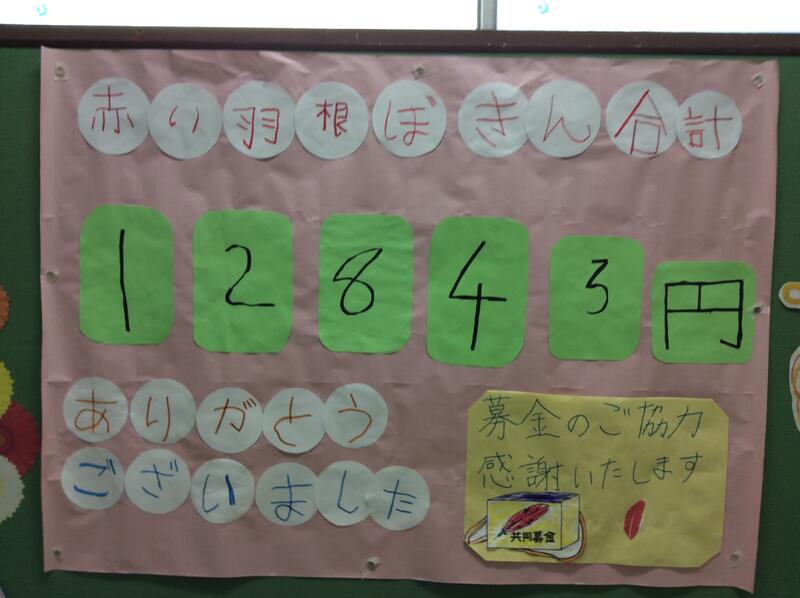 赤い羽根ぼきん合計
12843円
ありがとう
ございました
募金のご協力
感謝いたします
共同募金